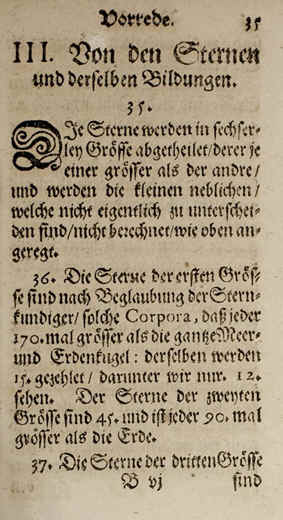 Vorrede. 35
III. Von den Sternen
und derselben Bildungen.
35.
DJe Sterne werden in sechser-
ley Grösse abgetheilet/derer je
einer grösser als der andre/
und werden die kleinen neblichen/
welche nicht eigentlich zu unterschei-
den sind/nicht berechnet/wie oben an-
geregt.
36. Die Sterne der ersten Grös-
se sind nach Beglaubung der Stern-
kundiger/ solche Corpora, daß jeder
170. mal grösser als die gantze Meer-
und Erdenkugel: derselben werden
15. gezehlet/ darunter wir nur. 12.
sehen. Der Sterne der zweyten
Grösse sind 45. und ist jeder 90. mal
grösser als die Erde.
37. Die Sterne der dritten Grösse
B vj sind